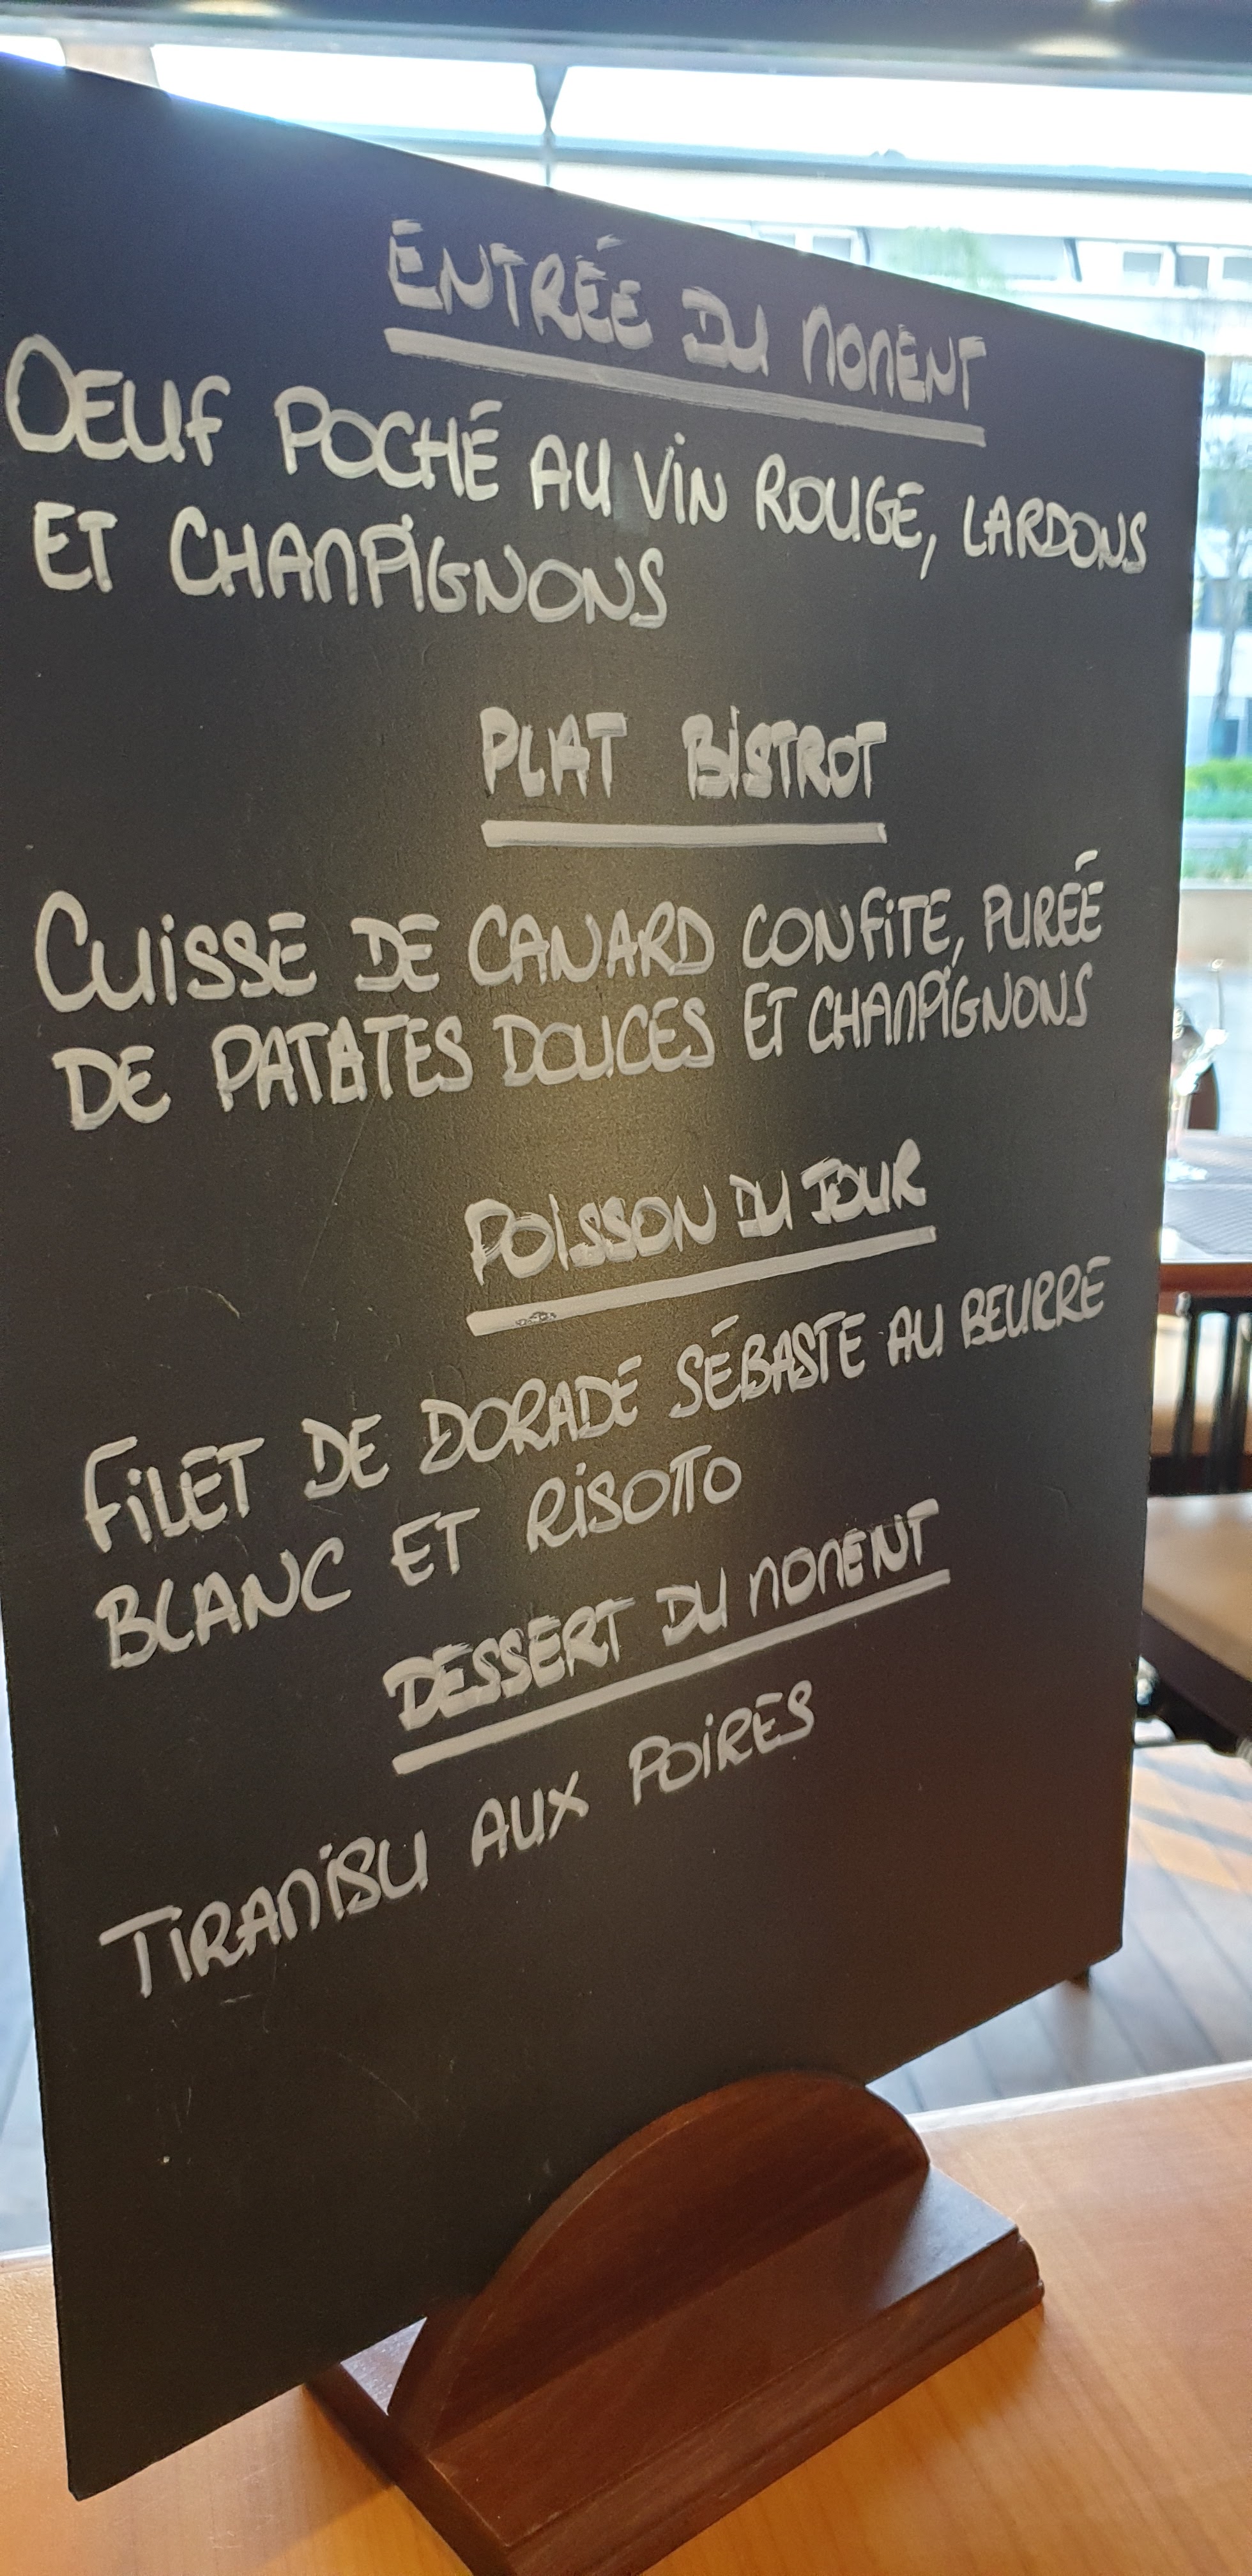 ENTRÉE DU MOMENT
OEUF POCHÉ AU VIN ROUGE, LARDONS
ET CHAMPIGNONS
PLAT BISTROT
CUISSE DE CANARD CONFITE, PURÉE
DE PATATES DOUCES ET CHAMPIGNONS
POISSON DU JOUR
FILET DE DORADE SÉBASTE AU BEURRE
BLANC ET RISOTTO
DESSERT DU MOMENT
TIRAMISU AUX POIRES